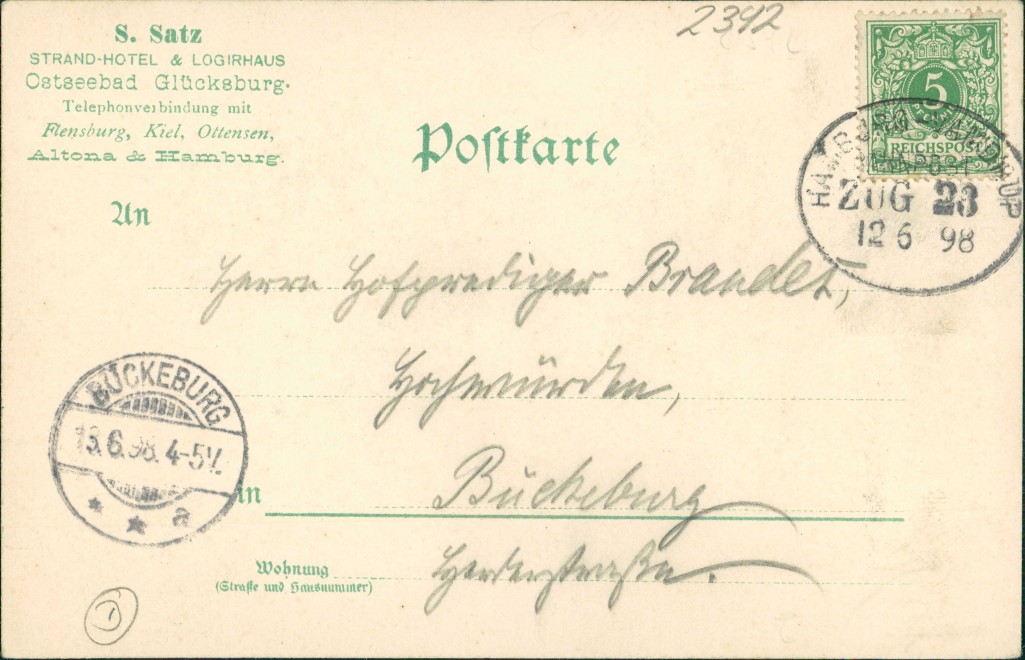 S. Satz
STRAND-HOTEL & LOGIRHAUS
Ostseebad Glücksburg.
Telephonverbindung mit
Flensburg, Kiel, Ottensen,
Altona & Hamburg.
2392
5
REICHSPOST
Postkarte
HAMBURG
BAHNPOST
ZUG 23
12 6 98
An
Herrn Hofprediger Brandes,
Hochwürden,
BÜCKEBURG
13.6.98. 4-5V.
* * a
in Bückeburg
Wohnung
(Straße und Hausnummer)
Herderstraße.
1